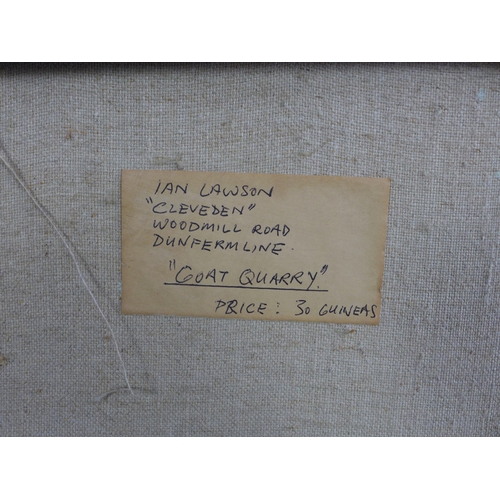 IAN LAWSON
"CLEVEDEN"
WOODMILL ROAD
DUNFERMLINE.
"GOAT QUARRY."
PRICE: 30 GUINEAS